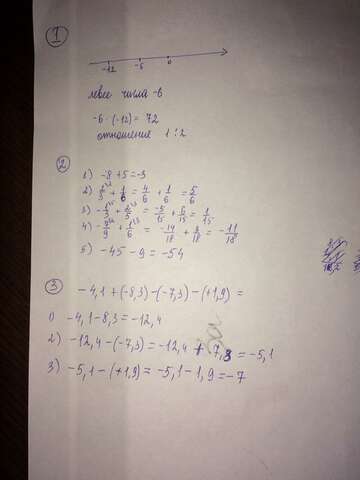 1
-12 -6 0
левее числа -6
-6 · (-12) = 72
отношение 1:2
2
1) -8+5=-3
2) 2/3 + 1/6 = 4/6 + 1/6 = 5/6
3) -1/3 + 2/5 = -5/15 + 6/15 = 1/15
4) -7/9 + 1/6 = -14/18 + 3/18 = -11/18
5) -45 - 9 = -54
3
-4,1 + (-8,3) - (-7,3) - (+1,9) =
1) -4,1-8,3=-12,4
2) -12,4-(-7,3)=-12,4 + 7,3 = -5,1
3) -5,1-(+1,9)= -5,1-1,9=-7